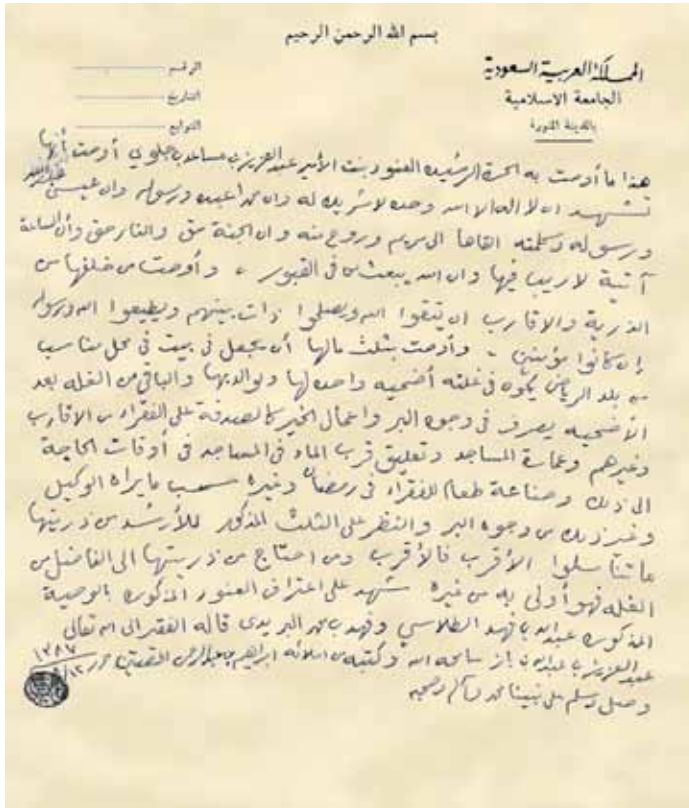 بسم الله الرحمن الرحيم
المملكة العربية السعودية
الجامعة الاسلامية
بالمدينة المنورة
الرقم
التاريخ
التوابع
هذا ما أوصت به الحرة الرشيده العنود بنت الأمير عبد العزيز بن مساعد بن جلوي أوصت أنها
تشهد ان لا اله الا الله وحده لا شريك له وان محمدا عبده ورسوله وان عيسى عبد الله
ورسوله وكلمته القاها الى مريم وروح منه وان الجنة حق والنار حق وأن الساعة
آتية لا ريب فيها وان الله يبعث من في القبور ، وأوصت من خلفها من
الذرية والاقارب ان يتقوا الله ويصلحوا ذات بينهم ويطيعوا الله ورسوله
إن كانوا مؤمنين ، وأوصت بثلث مالها أن يجعل في بيت في محل مناسب
من بلد الرياض يكون في غلته أضحيه واحده لها ولوالديها والباقي من الغله بعد
الأضحيه يصرف في وجوه البر واعمال الخير كالصدقة على الفقراء من الاقارب
وغيرهم وعمارة المساجد وتعليق قرب الماء في المساجد في أوقات الحاجة
الى ذلك وصناعة طعام للفقراء في رمضان وغيره حسب ما يراه الوكيل
وغير ذلك من وجوه البر والنظر على الثلث المذكور للأرشد من ذريتها
ما تناسلوا الأقرب فالأقرب ومن احتاج من ذريتها الى الفاضل من
الغله فهو أولى به من غيره شهد على اعتراف العنود المذكوره بالوصية
المذكوره عبد الله بن فهد الطلاسي وفهد بن محمد البريدي قاله الفقير الى الله تعالى
عبد العزيز بن عبد الله بن باز سامحه الله وكتبه من املائه ابراهيم بن عبد الرحمن حرر ١٣٨٧
وصلى وسلم على نبينا محمد وآله وصحبه